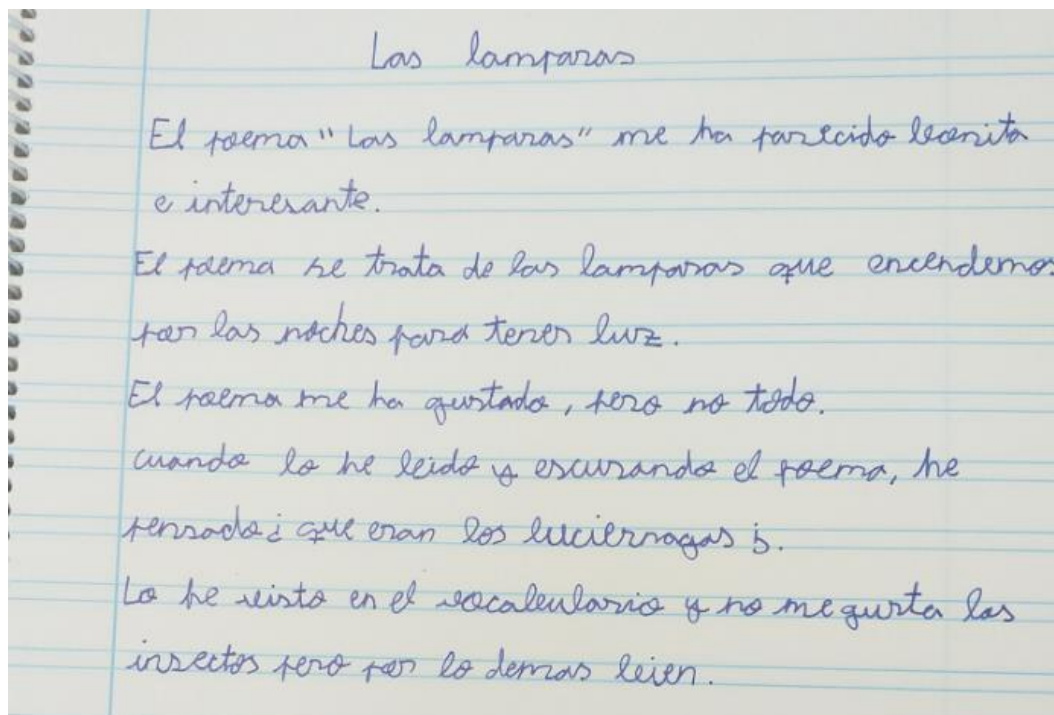 Las lamparas
El poema "Las lamparas" me ha parecido bonito
e interesante.
El poema se trata de las lamparas que encendemos
por las noches para tener luz.
El poema me ha gustado, pero no todo.
cuando lo he leido y escusando el poema, he
pensado ¿ que eran los luciernagas ?.
Lo he visto en el vocabulario y no me gusta los
insectos pero por lo demas bien.